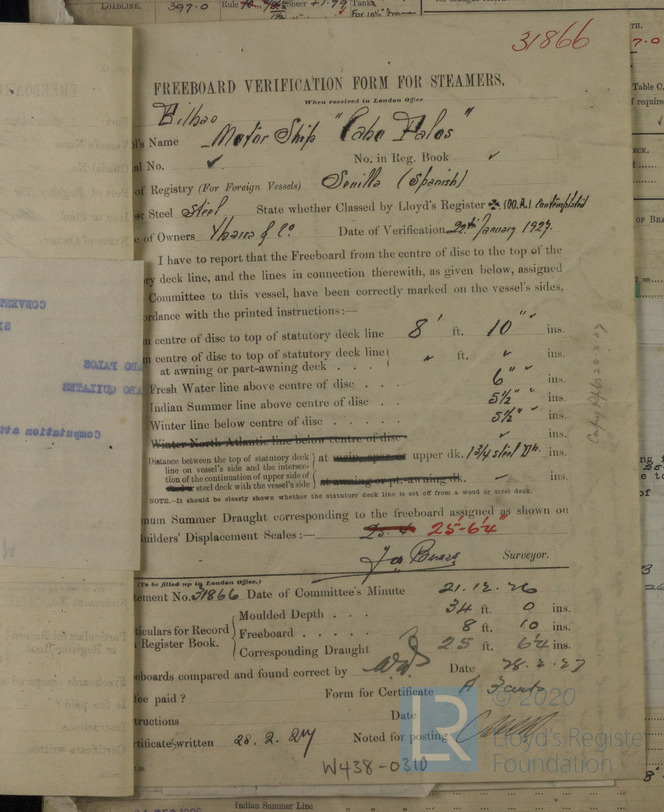 LOADLINE. 397.0 Rule
Tank
31866
7.0
FREEBOARD VERIFICATION FORM FOR STEAMERS.
When received in London Office
Bilbao
's Name Motor Ship "Cabo Palos"
No. No. in Reg. Book
of Registry (For Foreign Vessels) Sevilla (Spanish)
Steel Steel State whether Classed by Lloyd's Register ✠ 100.A.1 Contemplated
of Owners Ybarra & Co. Date of Verification January 1927.
I have to report that the Freeboard from the centre of disc to the top of the
ry deck line, and the lines in connection therewith, as given below, assigned
Committee to this vessel, have been correctly marked on the vessel's sides,
ordance with the printed instructions:—
centre of disc to top of statutory deck line 8' ft. 10" ins.
centre of disc to top of statutory deck line
at awning or part-awning deck . . . ft. ins.
Fresh Water line above centre of disc . . . 6" ins.
Indian Summer line above centre of disc . . 5½" ins.
Winter line below centre of disc . . . . 5½" ins.
Winter North Atlantic line below centre of disc ins.
Distance between the top of statutory deck
line on vessel's side and the intersec-
tion of the continuation of upper side of
steel deck with the vessel's side
at upper dk. 1 3/4 steel Dk. ins.
at awning or pt. awning dk. — ins.
NOTE.—It should be clearly shown whether the statutory deck line is set off from a wood or steel deck.
num Summer Draught corresponding to the freeboard assigned as shown on
uilders' Displacement Scales:— 25'-6¼"
Surveyor.
(To be filled up in London Office.)
ement No. 31866 Date of Committee's Minute 21.12.26
ticulars for Record
Register Book.
Moulded Depth . . . 34 ft. 0 ins.
Freeboard . . . . . 8 ft. 10 ins.
Corresponding Draught 25 ft. 6¼ ins.
eboards compared and found correct by Date 28.2.27
ee paid? Form for Certificate A
tructions Date
rtificate written 28.2.27 Noted for posting
W438-0310
© 2020
LR Lloyd's Register
Foundation
Indian Summer Line